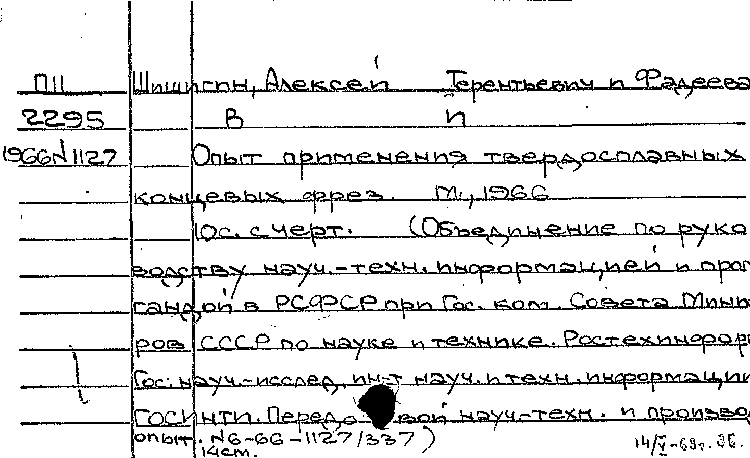 П11 Шишигин, Алексей Терентьевич и Фадеева
2295 В П
1966 N 1127 Опыт применения твердосплавных
концевых фрез. М., 1966
10с. с черт. (Объединение по руко
водству науч.-техн. информацией и проп
гандой в РСФСР при Гос. ком. Совета Мини
ров СССР по науке и технике. Ростехинфор
Гос. науч.-исслед. ин-т науч. и техн. информации
ГОСИНТИ. Передовой науч.-техн. и произво
опыт. N6-66-1127/337)
14см. 14/V-69г.